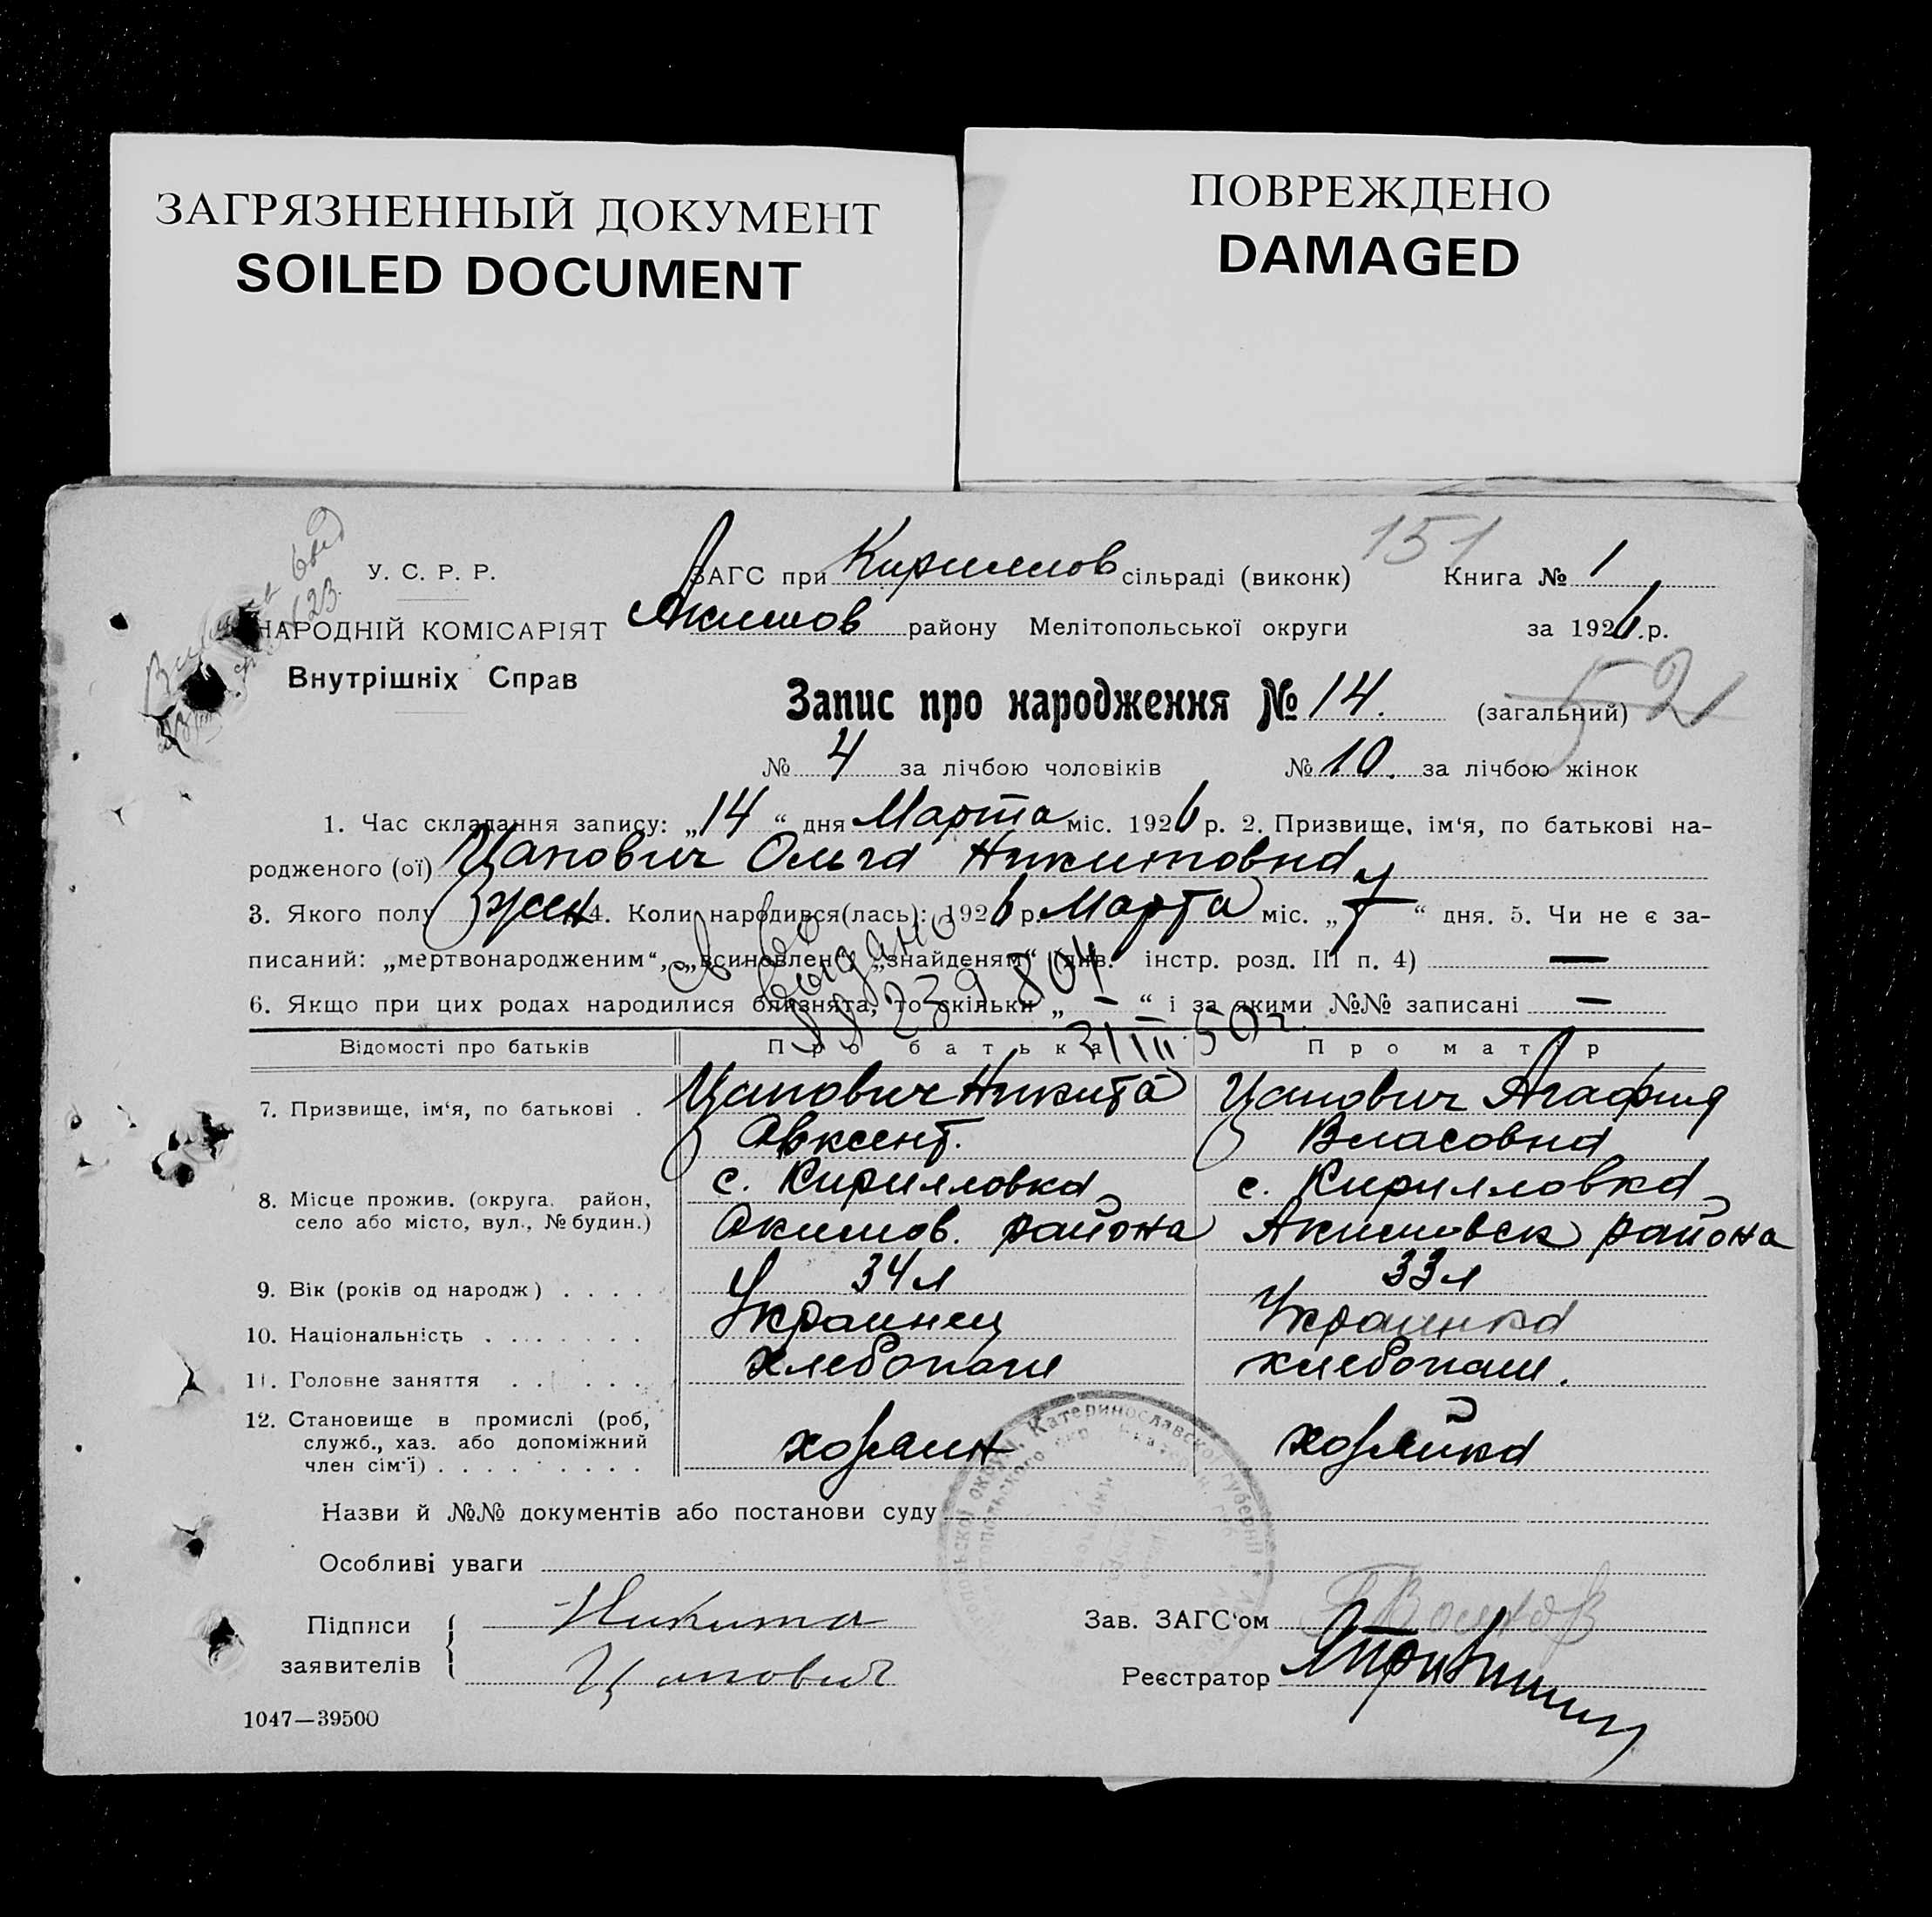 ЗАГРЯЗНЕННЫЙ ДОКУМЕНТ
SOILED DOCUMENT
ПОВРЕЖДЕНО
DAMAGED
151
У. С. Р. Р.
НАРОДНІЙ КОМІСАРІЯТ
Внутрішніх Справ
ЗАГС при Кириллов сільраді (виконк) Книга № 1
Акимов району Мелітопольської округи за 1926 р.
Запис про народження № 14. (загальний) 521
№ 4 за лічбою чоловіків № 10. за лічбою жінок
1. Час складання запису: „14“ дня Марта міс. 1926 р. 2. Призвище, ім'я, по батькові на-
родженого (ої) Цапович Ольга Никитовна
3. Якого полу жен 4. Коли народився(лась): 1926 р. Марта міс. „7“ дня. 5. Чи не є за-
писаний: „мертвонародженим“, „всиновлен“, „знайденям“ (див. інстр. розд. III п. 4) —
6. Якщо при цих родах народилися близнята, то скільки „—“ і за якими №№ записані —
св во
выдано
239804
21 III 50 г.
Відомості про батьків Про батька Про матір
7. Призвище, ім'я, по батькові . Цапович Никита Цапович Агафия
Авксент. Власовна
8. Місце прожив. (округа. район, с. Кирилловка с. Кирилловка
село або місто, вул., № будин.) Акимов. района Акимовск района
9. Вік (років од народж) . . . . 34 л 33 л
10. Національність . . . . . . . Украинец Украинка
11. Головне заняття . . . . . . хлебопаш хлебопаш.
12. Становище в промислі (роб,
служб., хаз. або допоміжний хозяин хозяйка
член сім'ї) . . . . . . . . .
Назви й №№ документів або постанови суду
Особливі уваги
Підписи Никита Зав. ЗАГС'ом
заявителів Цапович Реєстратор
1047—39500